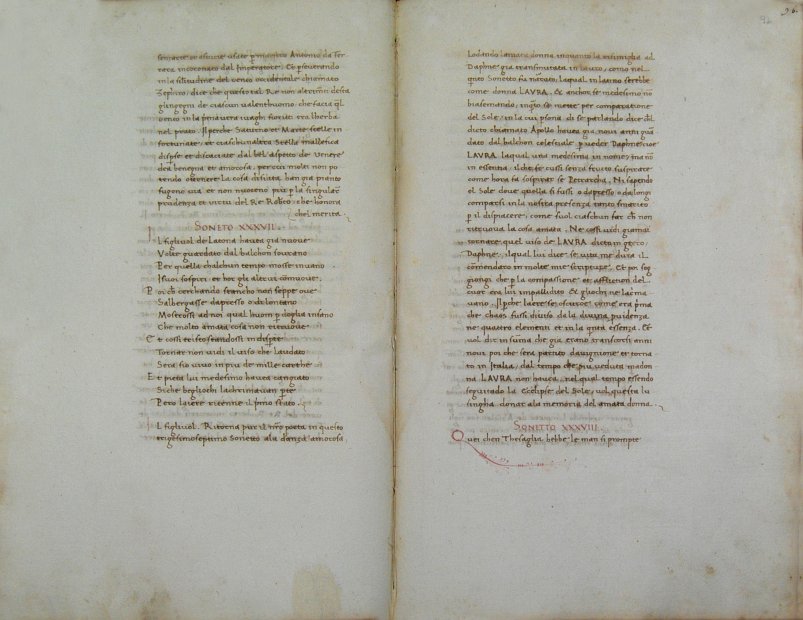 96.
sonare et dicure usato per maestro Antonio da Fer
rara incoronato dal Imperatore. Et perseverando
in la similitudine del vento occidentale chiamato
Zephiro, dice che questo tal Re non altrimenti desta
gli ingegni de ciascun valenthuomo, che facia ql
vento in la primavera i vaghi fioriti e tra lherba
nel prato. Il perche Saturno et Marte stelle in
fortunate, et ciaschunaltra Stella mallefica
disperse et discaciate dal bel aspetto de Venere
dea benegna et amorosa, per cui molti non po
tendo ottenere la cosa disiata han gia pianto
fugono via et non nuoceno piu p la singular
prudenza et virtu del Re Roberto, che honora
chel merita.
SONETO XXXVII.
Il figliuol de Latona havea gia nuove
Volte guardato dal balchon sovrano
Per quella chalchun tempo mosse in vano
I suoi sospiri et hor gli altrui commove.
Poi ch cerchando stancho non seppe ove
Salbergasse da presso o di lontano
Mostrossi ad noi qual huom p doglia insano
Che molto amata cosa non ritrove
Et cosi tristo standosi in disparte
Tornar non vidi il viso che laudato
Sera sio vivo in piu de mille carthe
Et pieta lui medesimo havea cangiato
Siche begliochi lachrimavan parte
Pero laiere ritenne il primo stato.
Il figliuol. Ritorna pur il nro poeta in questo
trigesimoseptimo Soneto ala danza amorosa.
Lodando lamata donna in quanto la assimiglia ad
Daphne gia transmutata in lauro, como nel
qnto Sonetto fu narrato, laqual in lauro serebbe
come donna LAVRA. Et anchor se medesimo no
biasemando, ingio se mette per comparatione
del Sole, in la cui psona di se parlando dice chl
dicto chiamato Apollo havea gia nove anni gua
dato dal balchon celestiale p veder Daphne cioe
LAVRA laqual una medesima in nome, ma no
in essentia, il che se cussi senza fructo suspirare
come hora fa sospirar se Petrarcha. Ni sapendo
el Sole dove quella si fussi o da presso o da longi
comparsi in la nostra presenza tanto smarito
p il dispiacere, come suol ciaschun far ch non
ritruova la cosa amata. Ne cossi vidi giamai
tornare quel viso de LAVRA dicto in greco
Daphne, ilqual lui dice se vita me dura il
comendaro in molte mie scripture. Et poi sog
giongi che p la compasione et affliction del
cuor era lui impallidito & gliochi ne lacrima
vano. Il pche laere se oscuroe, come era pma
che chaos fussi diviso da la divina puidenza
ne quattro elementi et in la quinta essenza. Et
vol dir in suma che gia erano transcorsi anni
novi poi che sera partito davignione et torna
to in Italia, dal tempo che piu veduta madon
na LAVRA non havea, nel qual tempo essendo
seguitado la Ecclipse del Sole, vol questa lu
singha donar ala memoria del amata donna.
SONETTO XXXVIII.
Quei chen Thesaglia hebbe le man si prompte